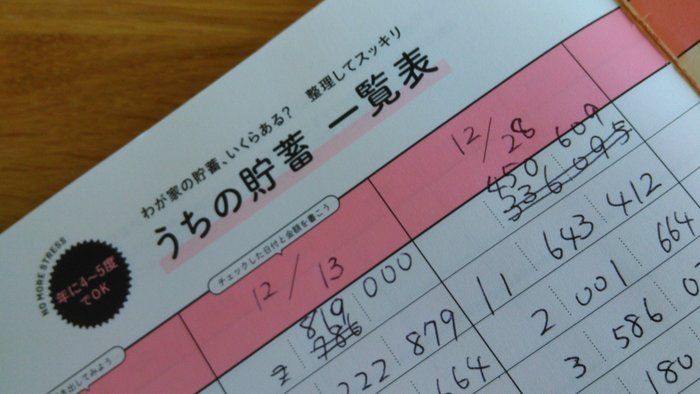 わが家の貯蓄、いくらある? 整理してスッキリ
うちの貯蓄 一覧表
NO MORE STRESS
年に4~5度
でOK
チェックした日付と金額を書こう
12/13
12/28
819 000
450 609
336 095
786
222 879
11 643 412
664
2 001 664
3 586 0
180
を出してみよう